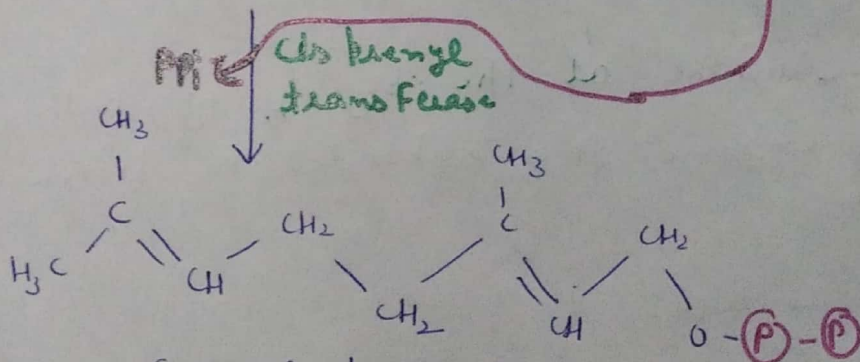 PPi
Cis prenyl
transferase
CH3
CH3
C
CH2
C
CH2
H3C
CH
CH2
CH
O-P-P